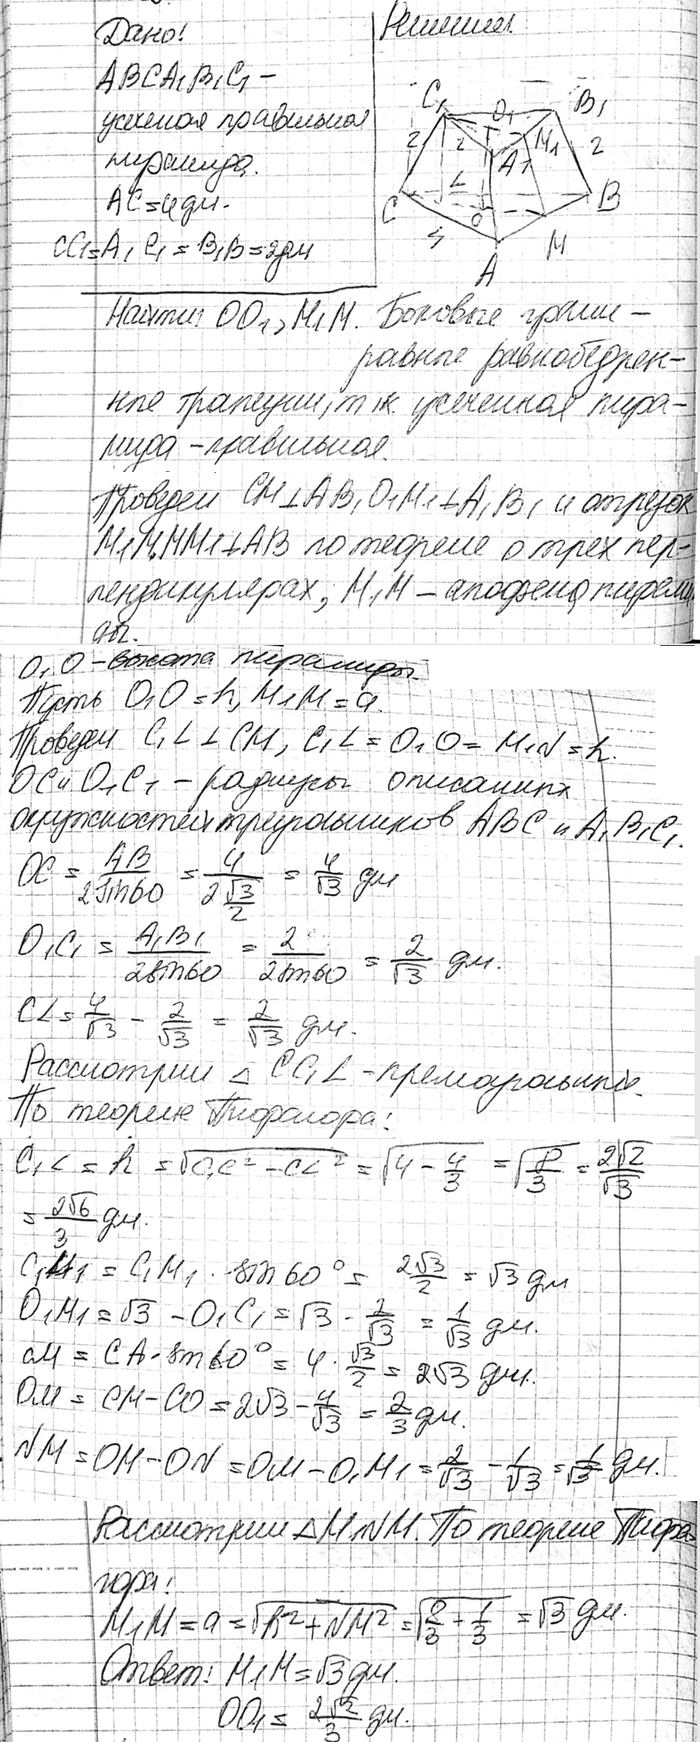 Дано:
Решение.
ABCA₁B₁C₁ –
усеченая правильная
пирамида.
AC=4 дм.
CC₁=A₁C₁=B₁B=2дм
C₁ O₁ B₁
2 2 A₁ M₁ 2
C L O B
4 A M
Найти: OO₁, M₁M. Боковые грани –
равные равнобедрен-
ные трапеции, т.к. усеченная пира-
мида – правильная.
Проведем CM⊥AB, O₁M₁⊥A₁B₁ и отрезок
M₁M, MM₁⊥AB по теореме о трех пер-
пендикулярах, M₁M – апофема пирами
ды.
O₁O – высота пирамиды.
Пусть O₁O = h, M₁M = a.
Проведем C₁L ⊥ CM, C₁L = O₁O = M₁N = h.
OC и O₁C₁ – радиусы описанных
окружностей треугольников ABC и A₁B₁C₁.
OC = AB/2sin60 = 4/(2 √3/2) = 4/√3 дм
O₁C₁ = A₁B₁/2sin60 = 2/2sin60 = 2/√3 дм.
CL = 4/√3 - 2/√3 = 2/√3 дм.
Рассмотрим △ CC₁L – прямоугольный.
По теореме Пифагора:
C₁L = h = √(C₁C² - CL²) = √(4 - 4/3) = √(8/3) = 2√2/√3
= 2√6/3 дм.
C₁M₁ = C₁M₁ · sin60° = 2√3/2 = √3 дм
O₁M₁ = √3 - O₁C₁ = √3 - 2/√3 = 1/√3 дм.
CM = CA · sin60° = 4 · √3/2 = 2√3 дм.
OM = CM - CO = 2√3 - 4/√3 = 2/3 дм.
NM = OM - ON = OM - O₁M₁ = 2/√3 - 1/√3 = 1/√3 дм.
Рассмотрим △M₁NM. По теореме Пифа
гора:
M₁M = a = √(h² + NM²) = √(8/3 + 1/3) = √3 дм.
Ответ: M₁M = √3 дм.
OO₁ = 2√2/3 дм.